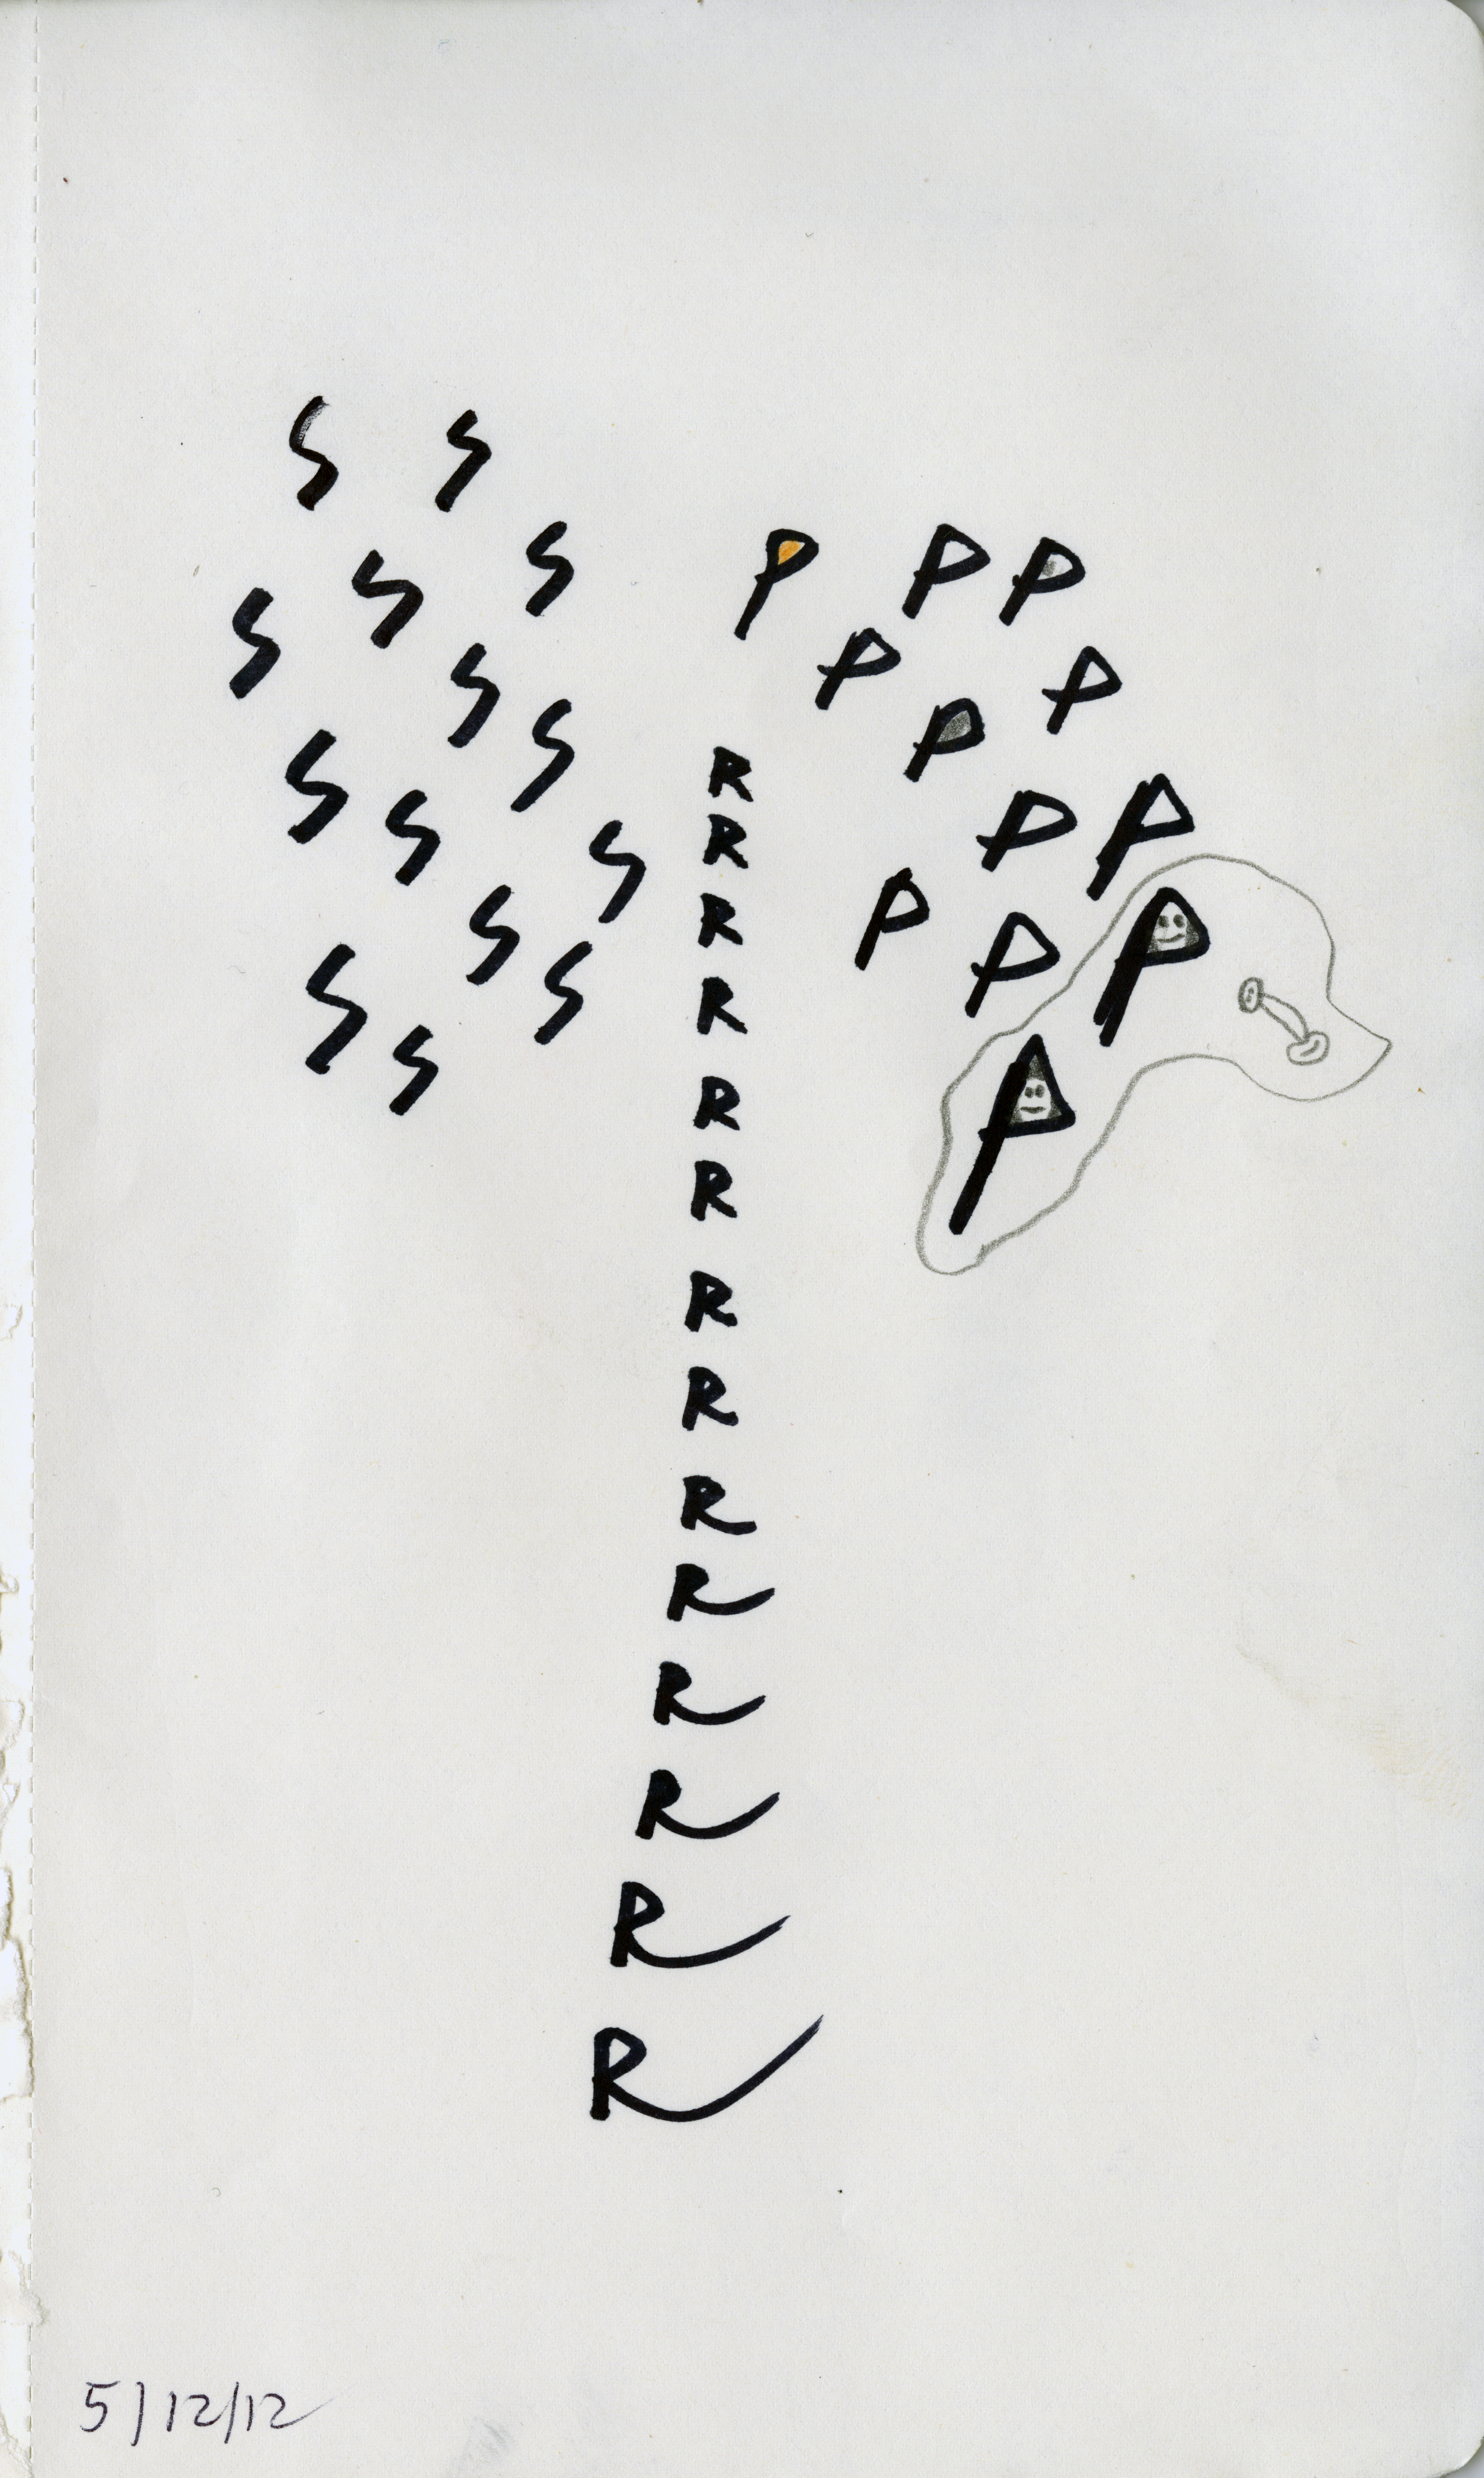 S S
S P P P
S S P P
S S P
S R
S S R P P
S R P P P
S S R
S R P
R
R
R
R
R
R
R
R
R
5/12/12